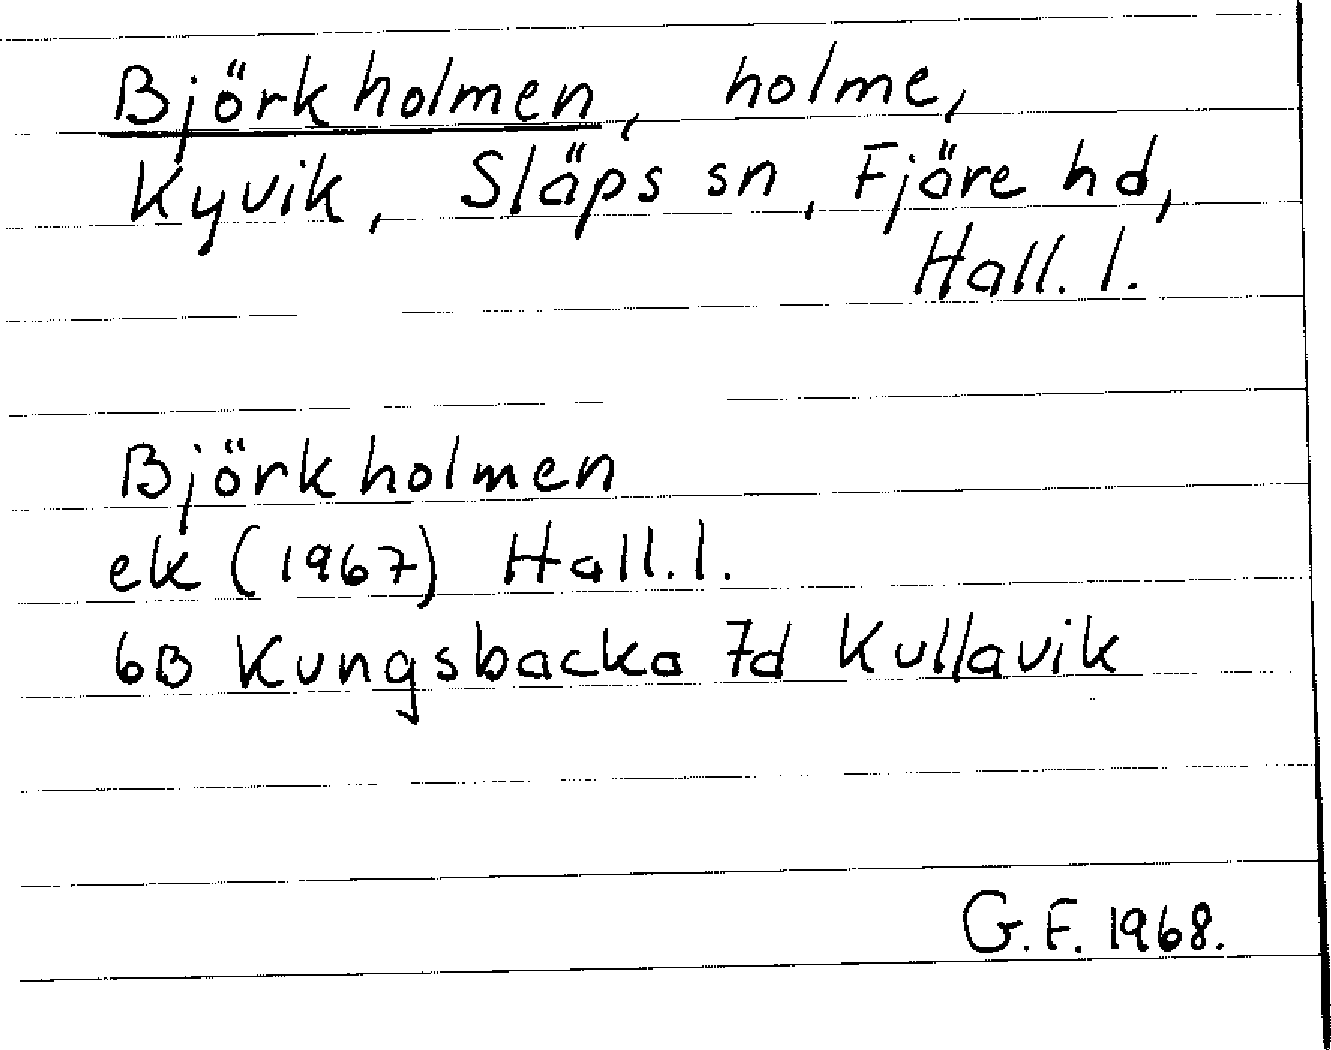 Björkholmen, holme,
Kyvik, Släps sn, Fjäre hd,
Hall. l.
Björkholmen
ek (1967) Hall. l.
6B Kungsbacka 7d Kullavik
G.F. 1968.